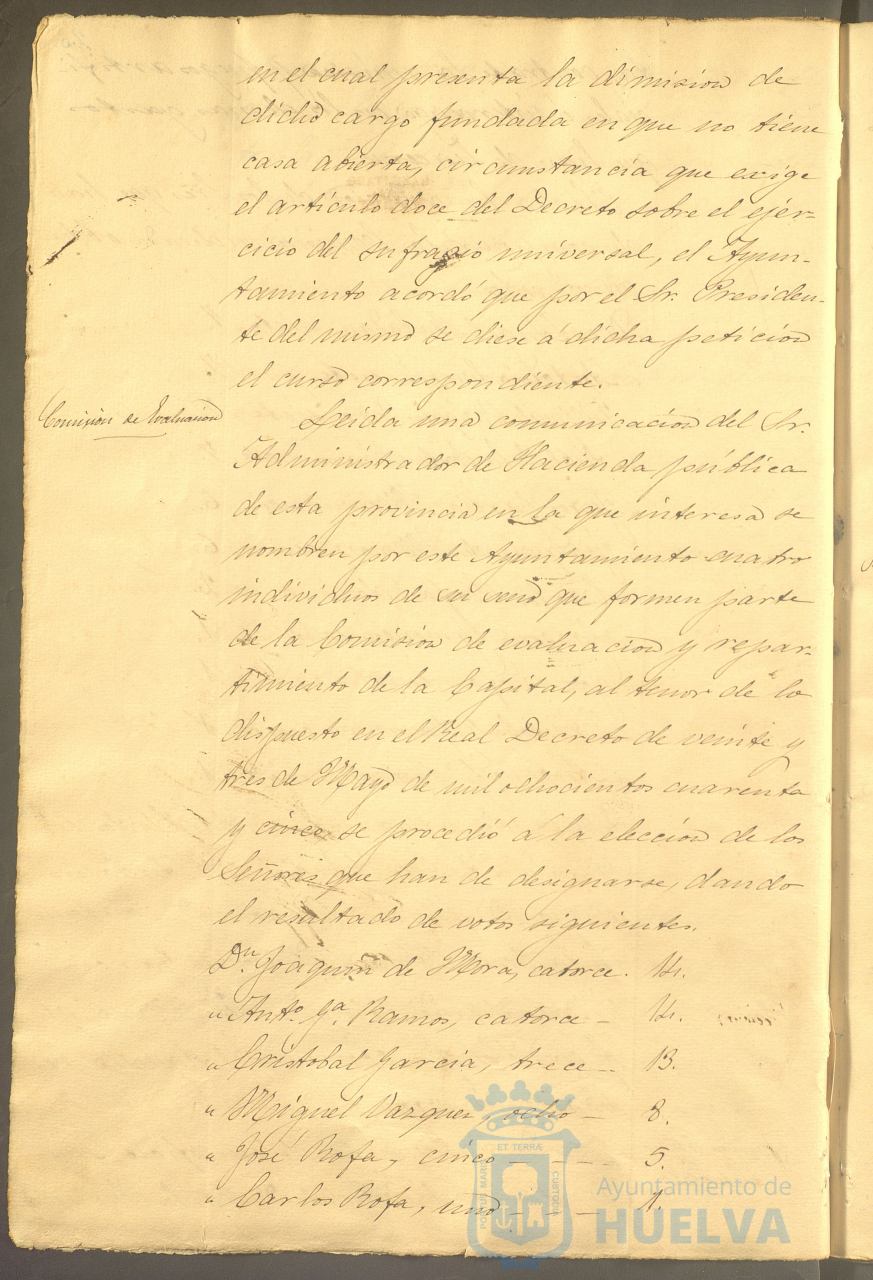 en el cual presenta la dimision de
dicho cargo fundada en que no tiene
casa abierta, circunstancia que exige
el artículo doce del Decreto sobre el ejer-
cicio del sufragio universal, el Ayun-
tamiento acordó que por el Sr. Presiden-
te del mismo se diese á dicha peticion
el curso correspondiente.
Comision de Evaluacion
Leida una comunicacion del Sr.
Administrador de Hacienda pública
de esta provincia en la que interesa se
nombren por este Ayuntamiento cuatro
individuos de su seno que formen parte
de la Comision de evaluacion y repar-
timiento de la Capital, al tenor de lo
dispuesto en el Real Decreto de veinte y
tres de Mayo de mil ochocientos cuarenta
y cinco se procedió á la eleccion de los
Señores que han de designarse, dando
el resultado de votos siguientes.
Dn. Joaquin de Mora, catorce. 14.
" Anto. Ga. Ramos, catorce - 14.
" Cristobal Garcia, trece - 13.
" Miguel Vazquez, ocho - 8.
" José Rofa, cinco - - - 5.
" Carlos Rofa, uno - - - 1.
ET TERRÆ
PORTUS MARIS
CUSTODIA
Ayuntamiento de
HUELVA